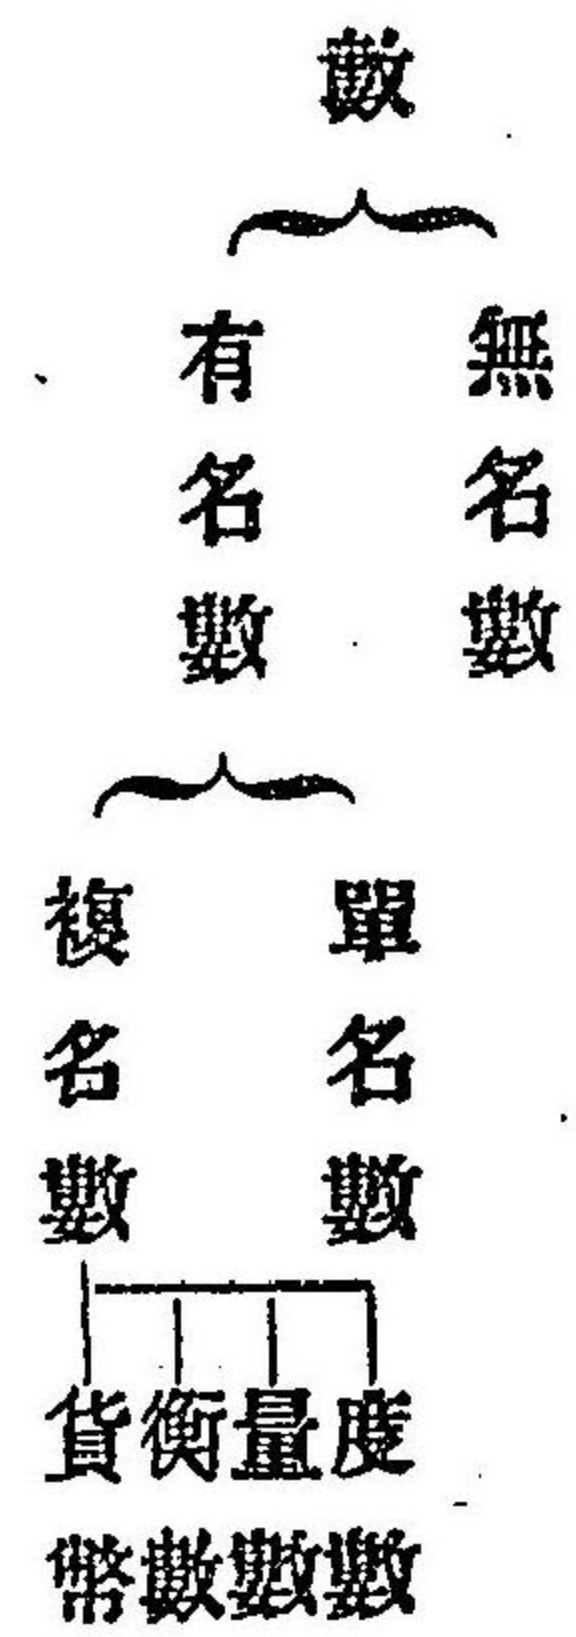 數
無名數
有名數
單名數
複名數
度數
量數
衡數
貨幣